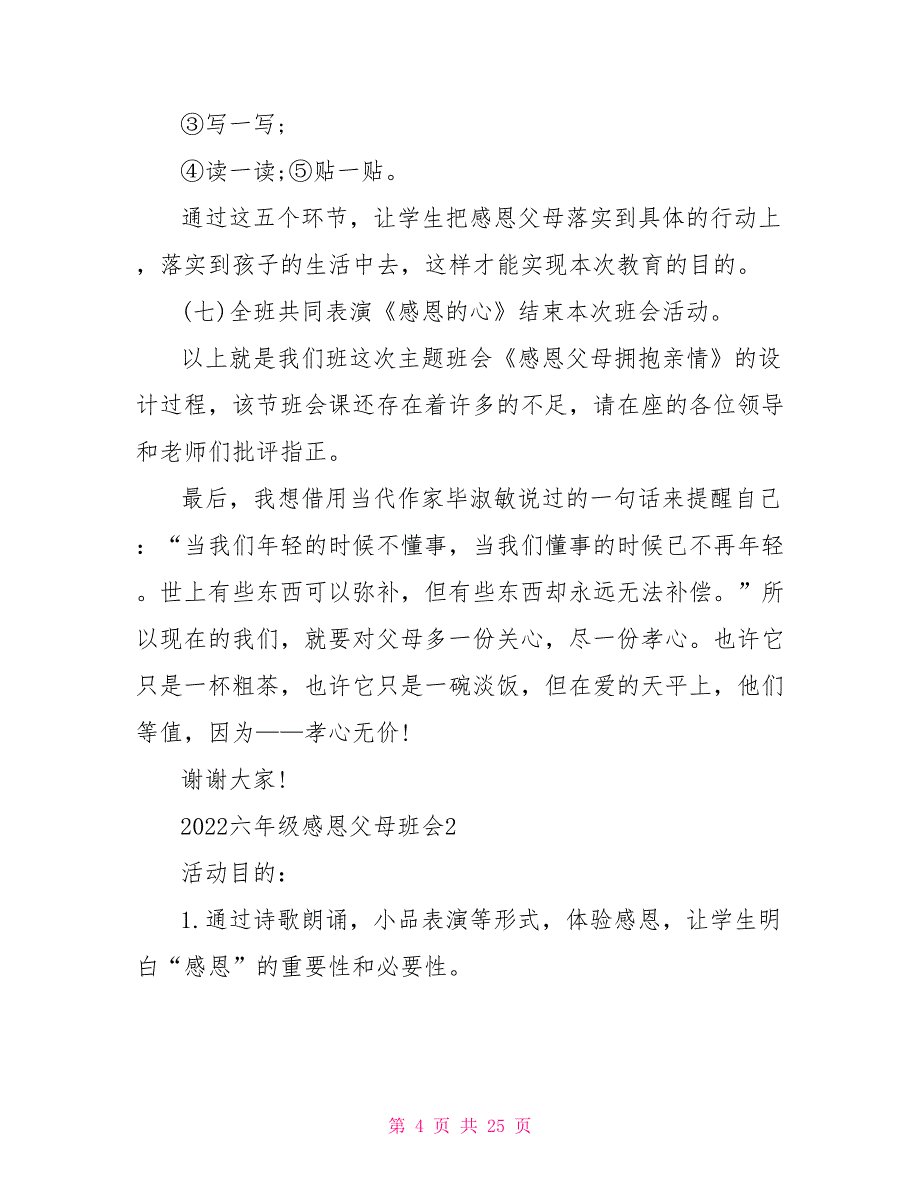 ③写一写;
④读一读;⑤贴一贴。
通过这五个环节，让学生把感恩父母落实到具体的行动上
，落实到孩子的生活中去，这样才能实现本次教育的目的。
(七)全班共同表演《感恩的心》结束本次班会活动。
以上就是我们班这次主题班会《感恩父母拥抱亲情》的设
计过程，该节班会课还存在着许多的不足，请在座的各位领导
和老师们批评指正。
最后，我想借用当代作家毕淑敏说过的一句话来提醒自己
：“当我们年轻的时候不懂事，当我们懂事的时候已不再年轻
。世上有些东西可以弥补，但有些东西却永远无法补偿。”所
以现在的我们，就要对父母多一份关心，尽一份孝心。也许它
只是一杯粗茶，也许它只是一碗淡饭，但在爱的天平上，他们
等值，因为——孝心无价!
谢谢大家!
2022六年级感恩父母班会2
活动目的：
1.通过诗歌朗诵，小品表演等形式，体验感恩，让学生明
白“感恩”的重要性和必要性。
第 4 页 共 25 页